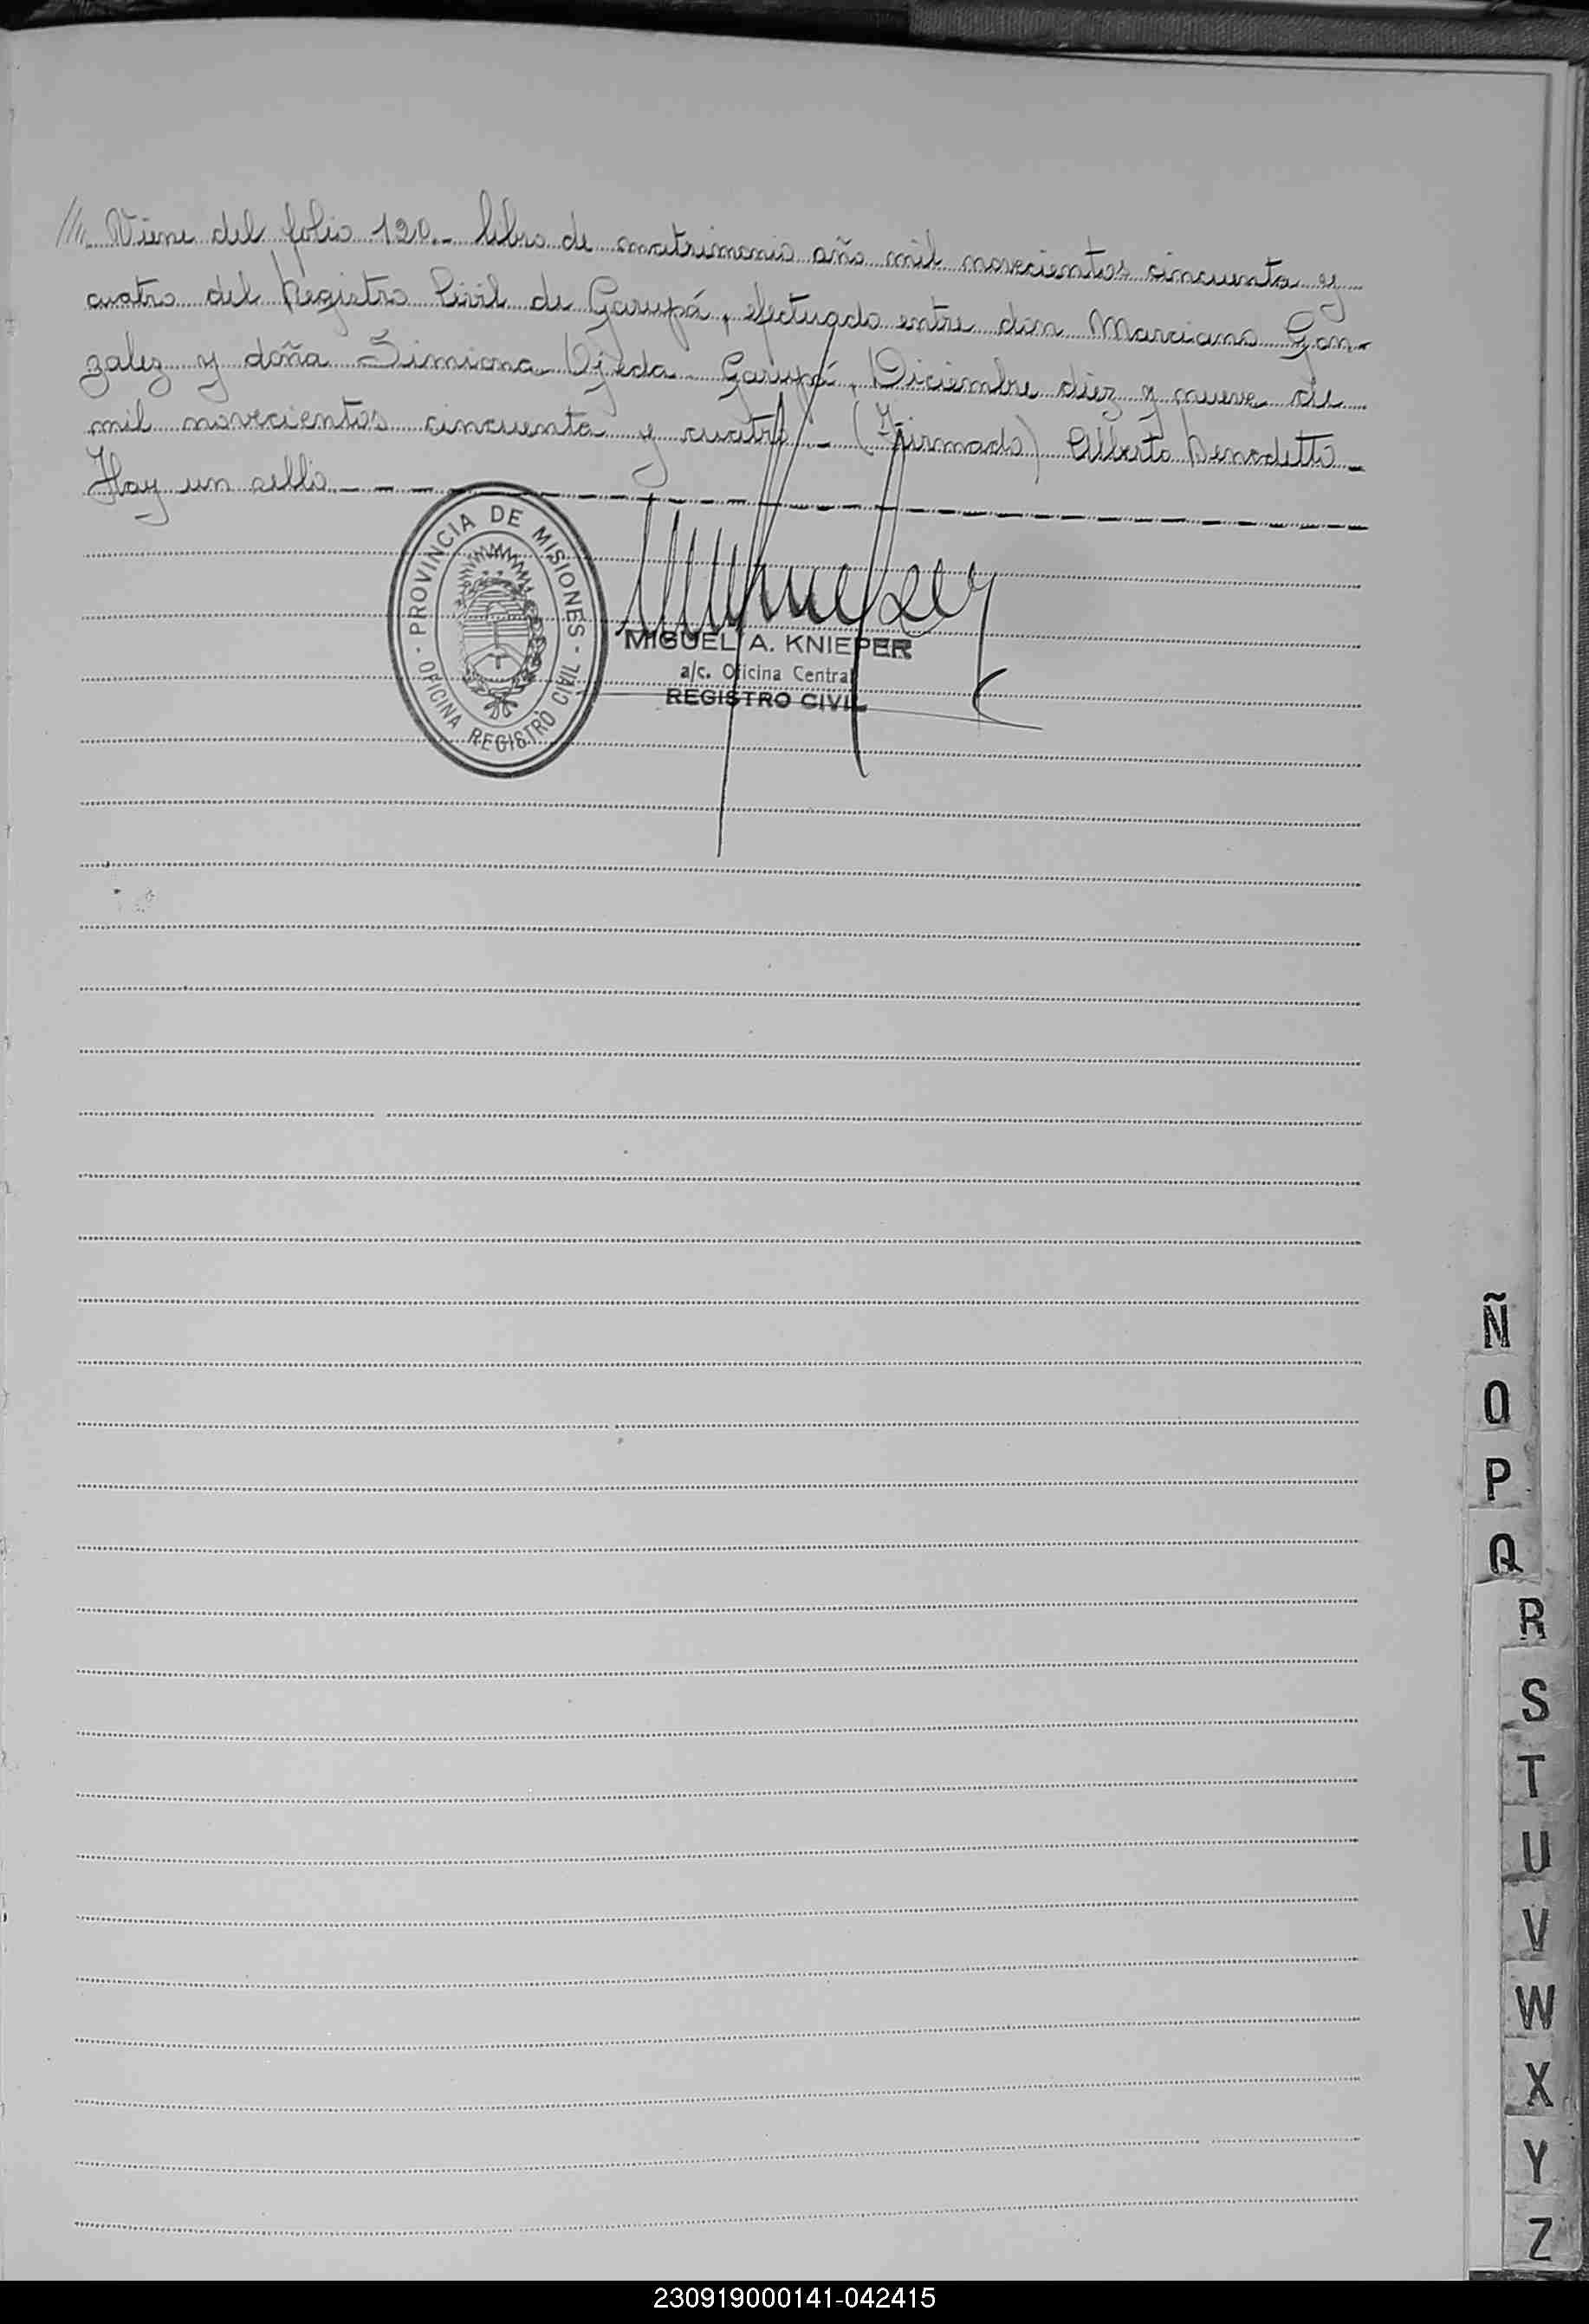 //// Viene del folio 120.- libro de matrimonio año mil novecientos cincuenta y
cuatro del Registro Civil de Garupá, efectuado entre don Marciano Gon-
zalez y doña Simiona Ojeda. Garupá, Diciembre diez y nueve de
mil novecientos cincuenta y cuatro.- (Firmado) Alberto Benedetto.-
Hay un sello.- - - -
PROVINCIA DE MISIONES
- OFICINA REGISTRO CIVIL -
MIGUEL A. KNIEPER
a/c. Oficina Central
REGISTRO CIVIL
Ñ
O
P
Q
R
S
T
U
V
W
X
Y
Z
230919000141-042415